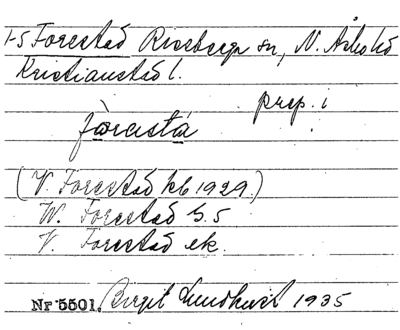 1-5 Forestad Riseberga sn, N. Åsbo hd
Kristianstad l.
prep. i
fòrestá
(V. Forestad kb 1929.)
W. Forestad G. 5
V. Forestad ek.
Nr 5501. Birgit Lundkvist 1935